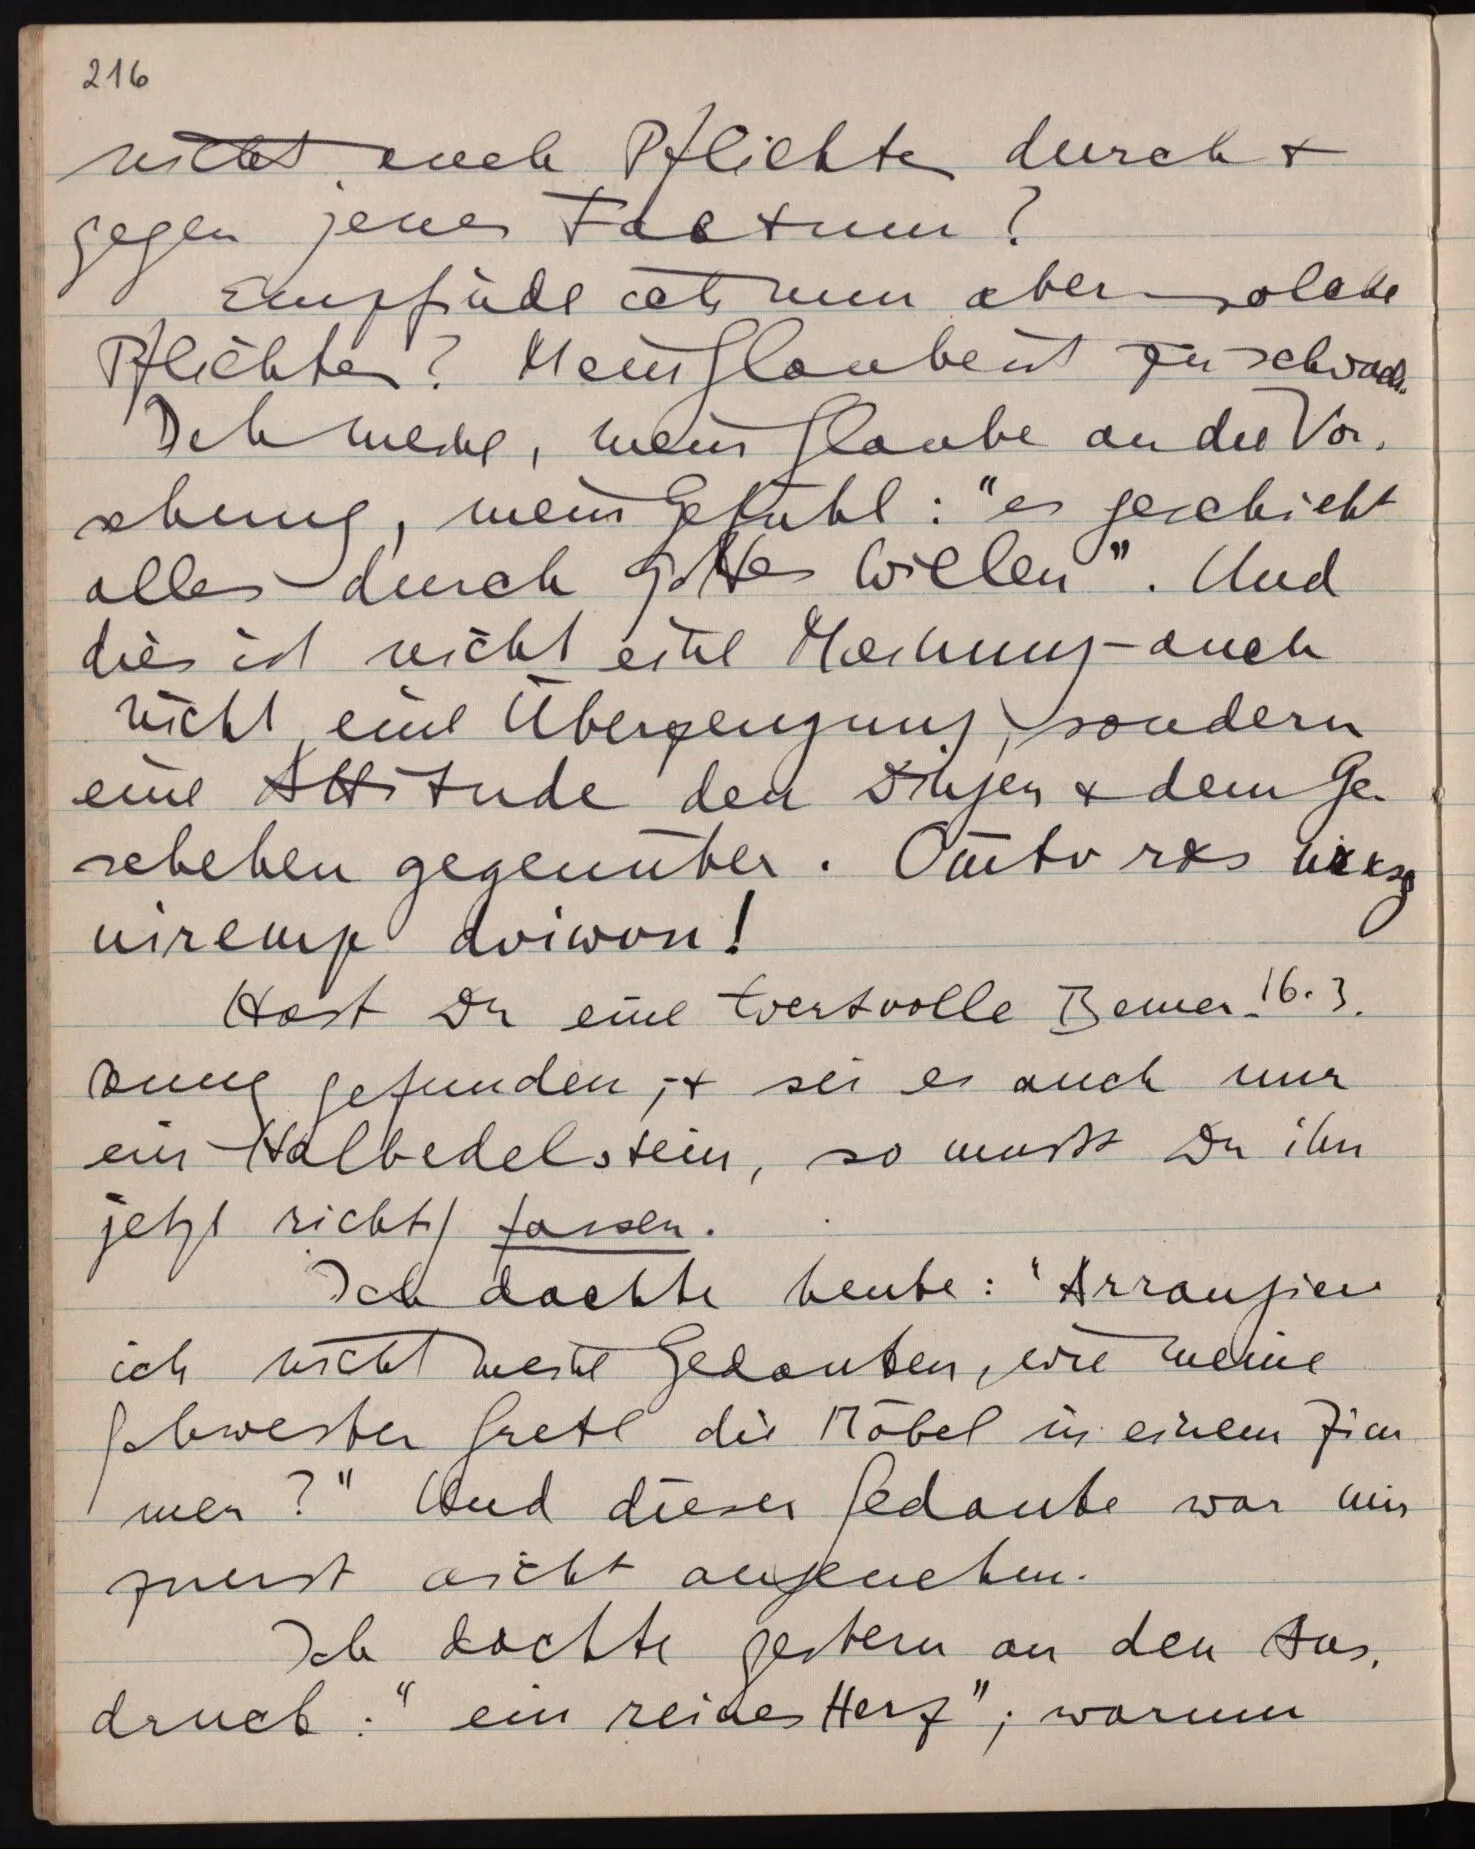 216
nicht auch Pflichten durch +
gegen jenes Factum?
Empfinde ich nun aber solche
Pflichten? Mein Glaube ist zu schwach.
Ich meine, mein Glaube an die Vor-
sehung, mein Gefühl: "es geschieht
alles durch Gottes Willen". Und
dies ist nicht eine Meinung – auch
nicht eine Überzeugung, sondern
eine Attitude den Dingen + dem Ge-
schehen gegenüber. Om̈tv rxs nrxsg
uiremp dviwvn!
Hast Du eine wertvolle Bemer- 16.3.
kung gefunden, + sei es auch nur
ein Halbedelstein, so mußt Du ihn
jetzt richtig fassen.
Ich dachte heute: "Arrangiere
ich nicht meine Gedanken, wie meine
Schwester Gretl die Möbel in einem Zim
mer?" Und dieser Gedanke war mir
zuerst nicht angenehm.
Ich dachte gestern an den Aus-
druck: "ein reines Herz"; warum